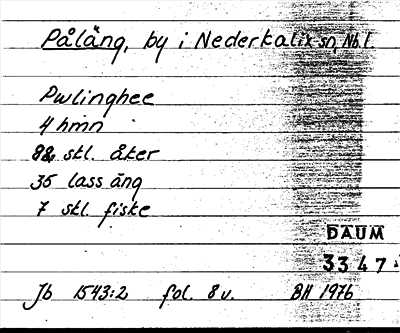 Påläng, by i Nederkalix sn, Nb.l.
Pwlinghee
4 hmn
88½ skl. åker
35 lass äng
7 skl. fiske
DAUM
3347.
Jb 1543:2 fol. 8 v. BH 1976